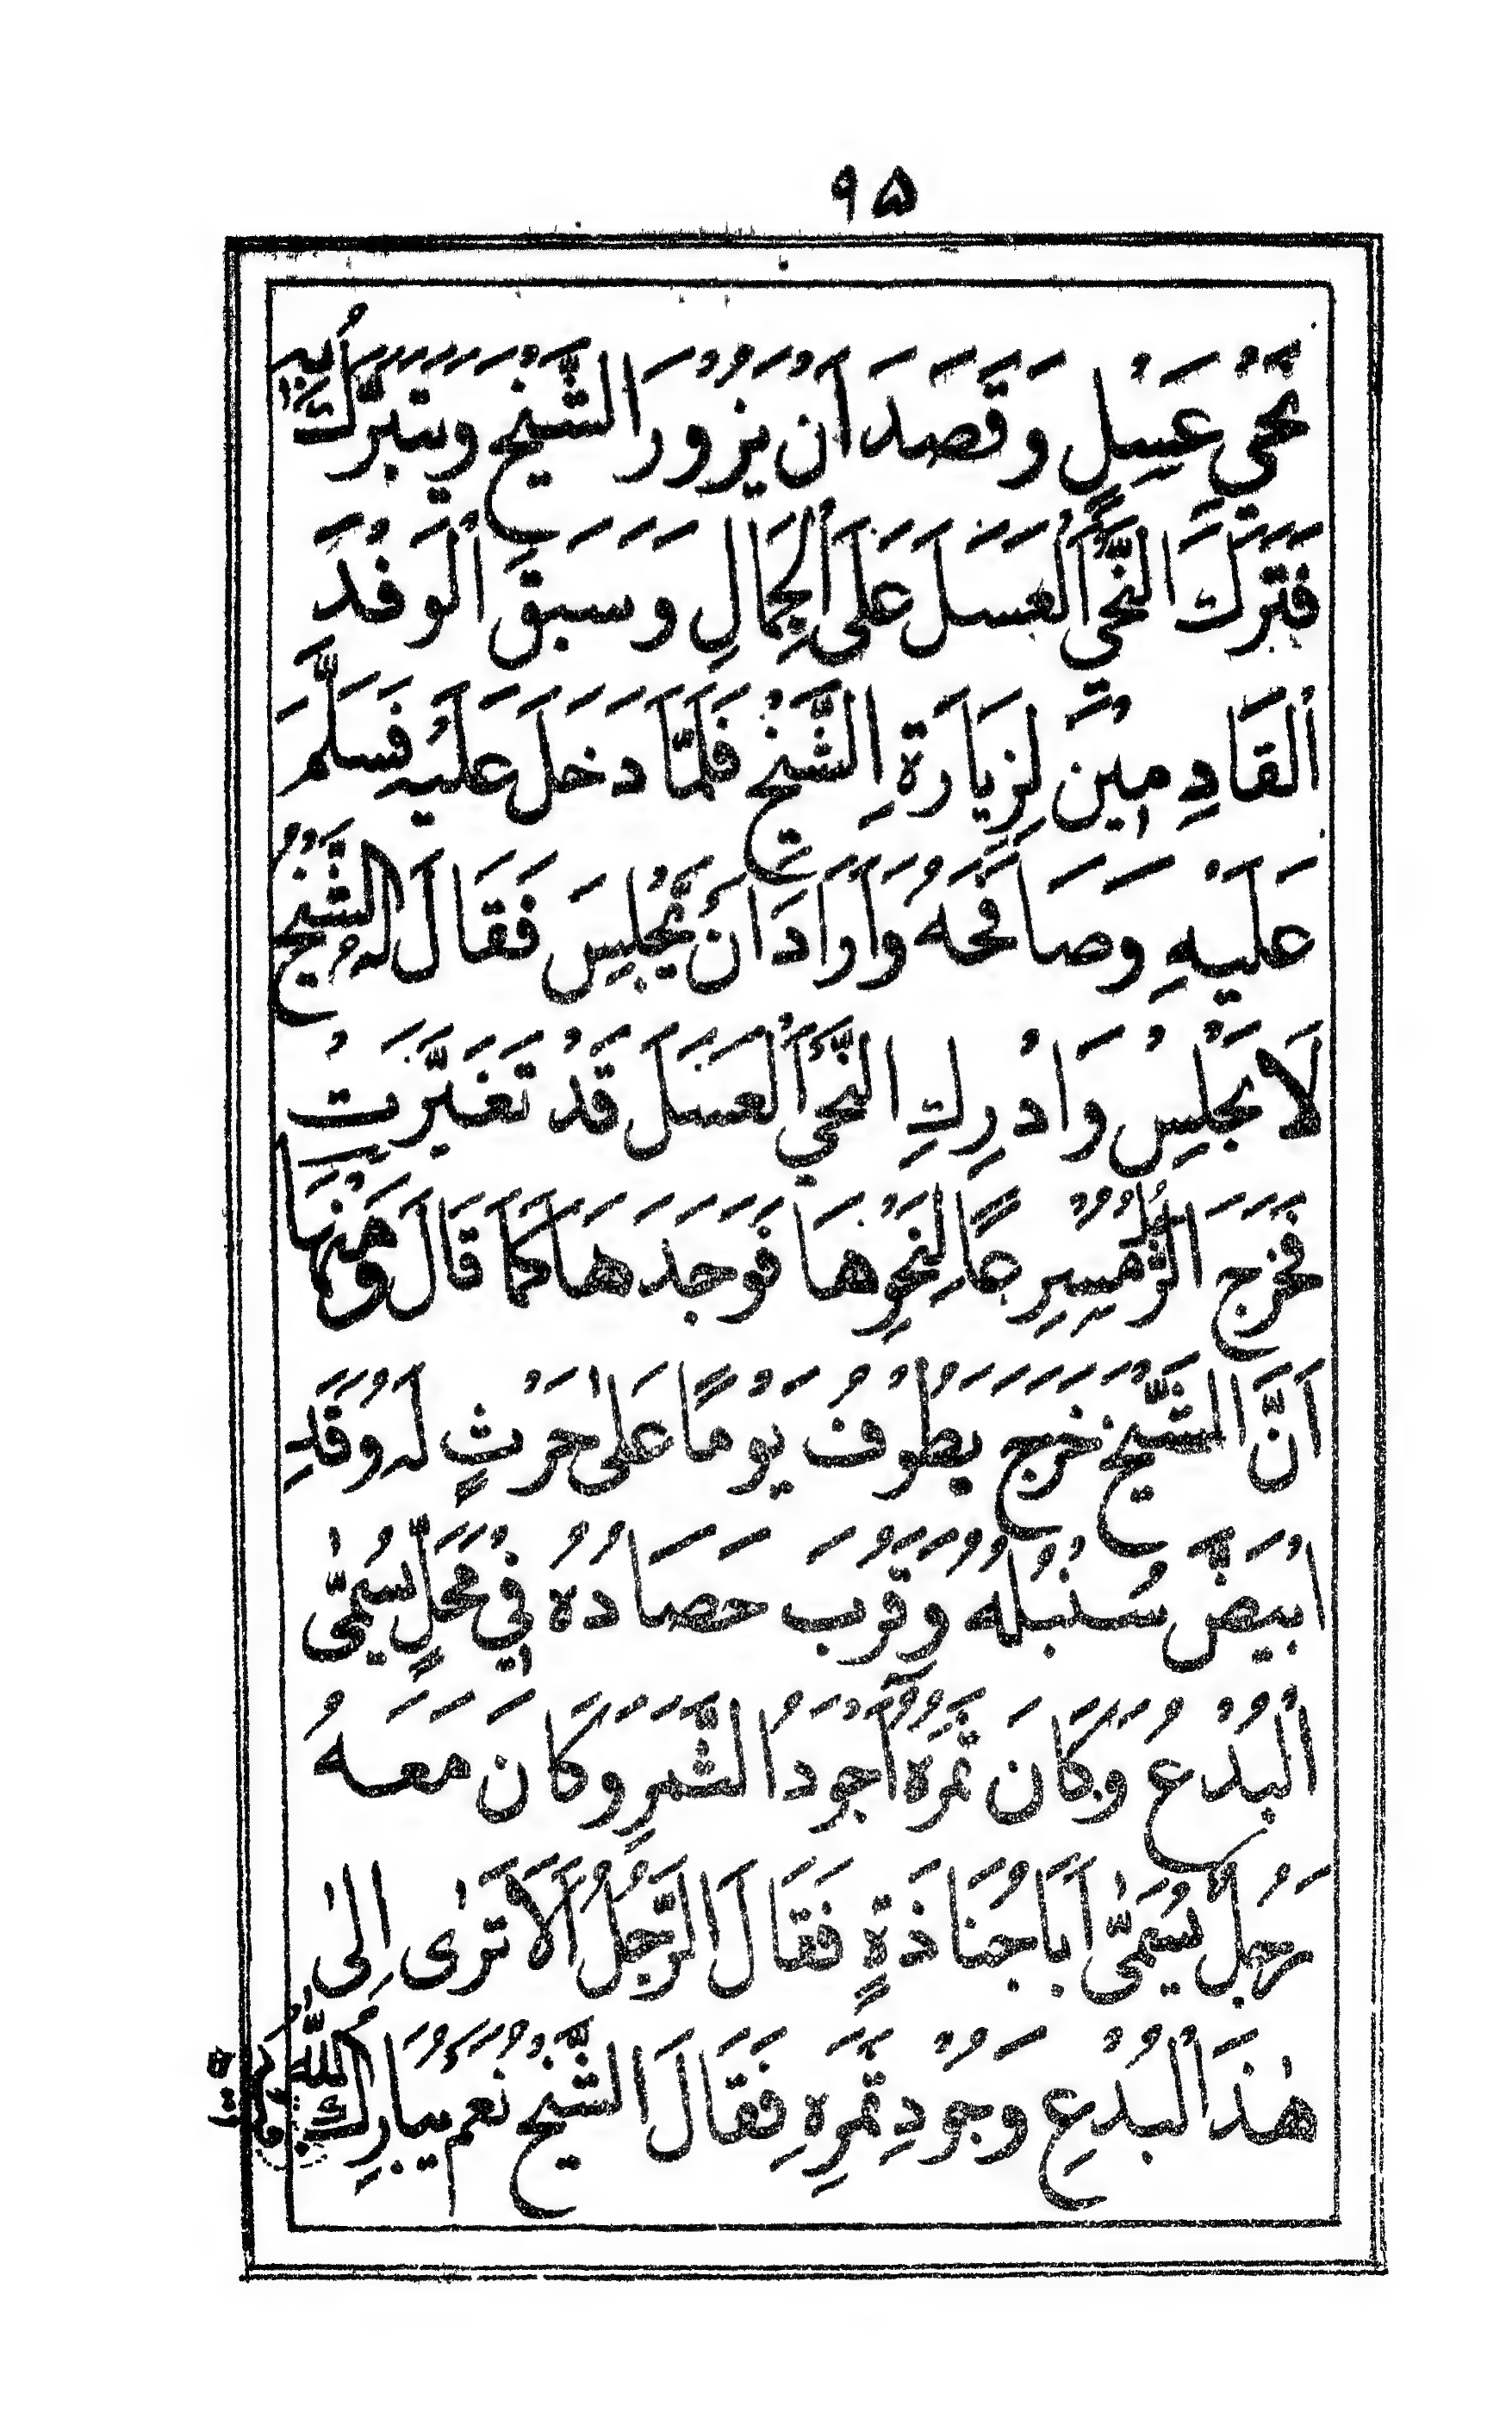 ٩٥
نَحْيِ عَسَلٍ وَقَصَدَ اَنْ يَزُوْرَ الشَّيْخَ وَيَتَبَرَّكَ بِهِ
فَتَرَكَ النَّحْيَ الْعَسَلَ عَلَى الْجِمَالِ وَسَبَقَ الْوَفْدَ
الْقَادِمِيْنَ لِزِيَارَةِ الشَّيْخِ فَلَمَّا دَخَلَ عَلَيْهِ فَسَلَّمَ
عَلَيْهِ وَصَافَحَهُ وَاَرَادَ اَنْ يَجْلِسَ فَقَالَ لَهُ الشَّيْخُ
لَا تَجْلِسْ وَادْرِكِ النَّحْيَ الْعَسَلَ قَدْ تَغَيَّرَتْ
فَخَرَجَ الزُّمَيْرِ لِنَحْوِهَا فَوَجَدَهَا كَمَا قَالَ وَمِنْهَا
اَنَّ الشَّيْخَ خَرَجَ يَطُوْفُ يَوْمًا عَلٰى حَرْثٍ لَهُ وَقَدِ
ابْيَضَّ سُنْبُلُهُ وَقَرُبَ حَصَادُهُ فِيْ مَحَلٍّ يُسَمّٰى
الْبُدْعُ وَكَانَ ثَمَرُهُ اَجْوَدُ الثَّمَرِ وَكَانَ مَعَهُ
رَجُلٌ يُسَمّٰى اَبَا جُنَاذَةٍ فَقَالَ الرَّجُلُ اَلَا تَرٰى اِلٰى
هٰذَا الْبُدْعِ وَجُوْدِ ثَمَرِهِ فَقَالَ الشَّيْخُ نَعَمْ يُبَارِكُ اللّٰهُ